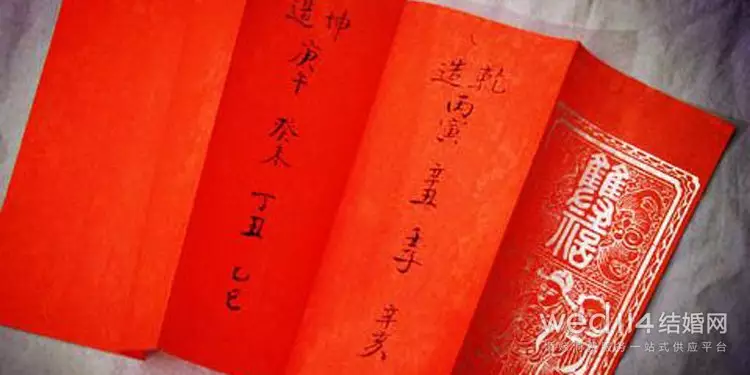 雙福
乾
造 丙寅 辛丑 壬子 辛亥
坤
造 庚午 癸未 丁丑 乙巳
wed114结婚网
一站式供应平台